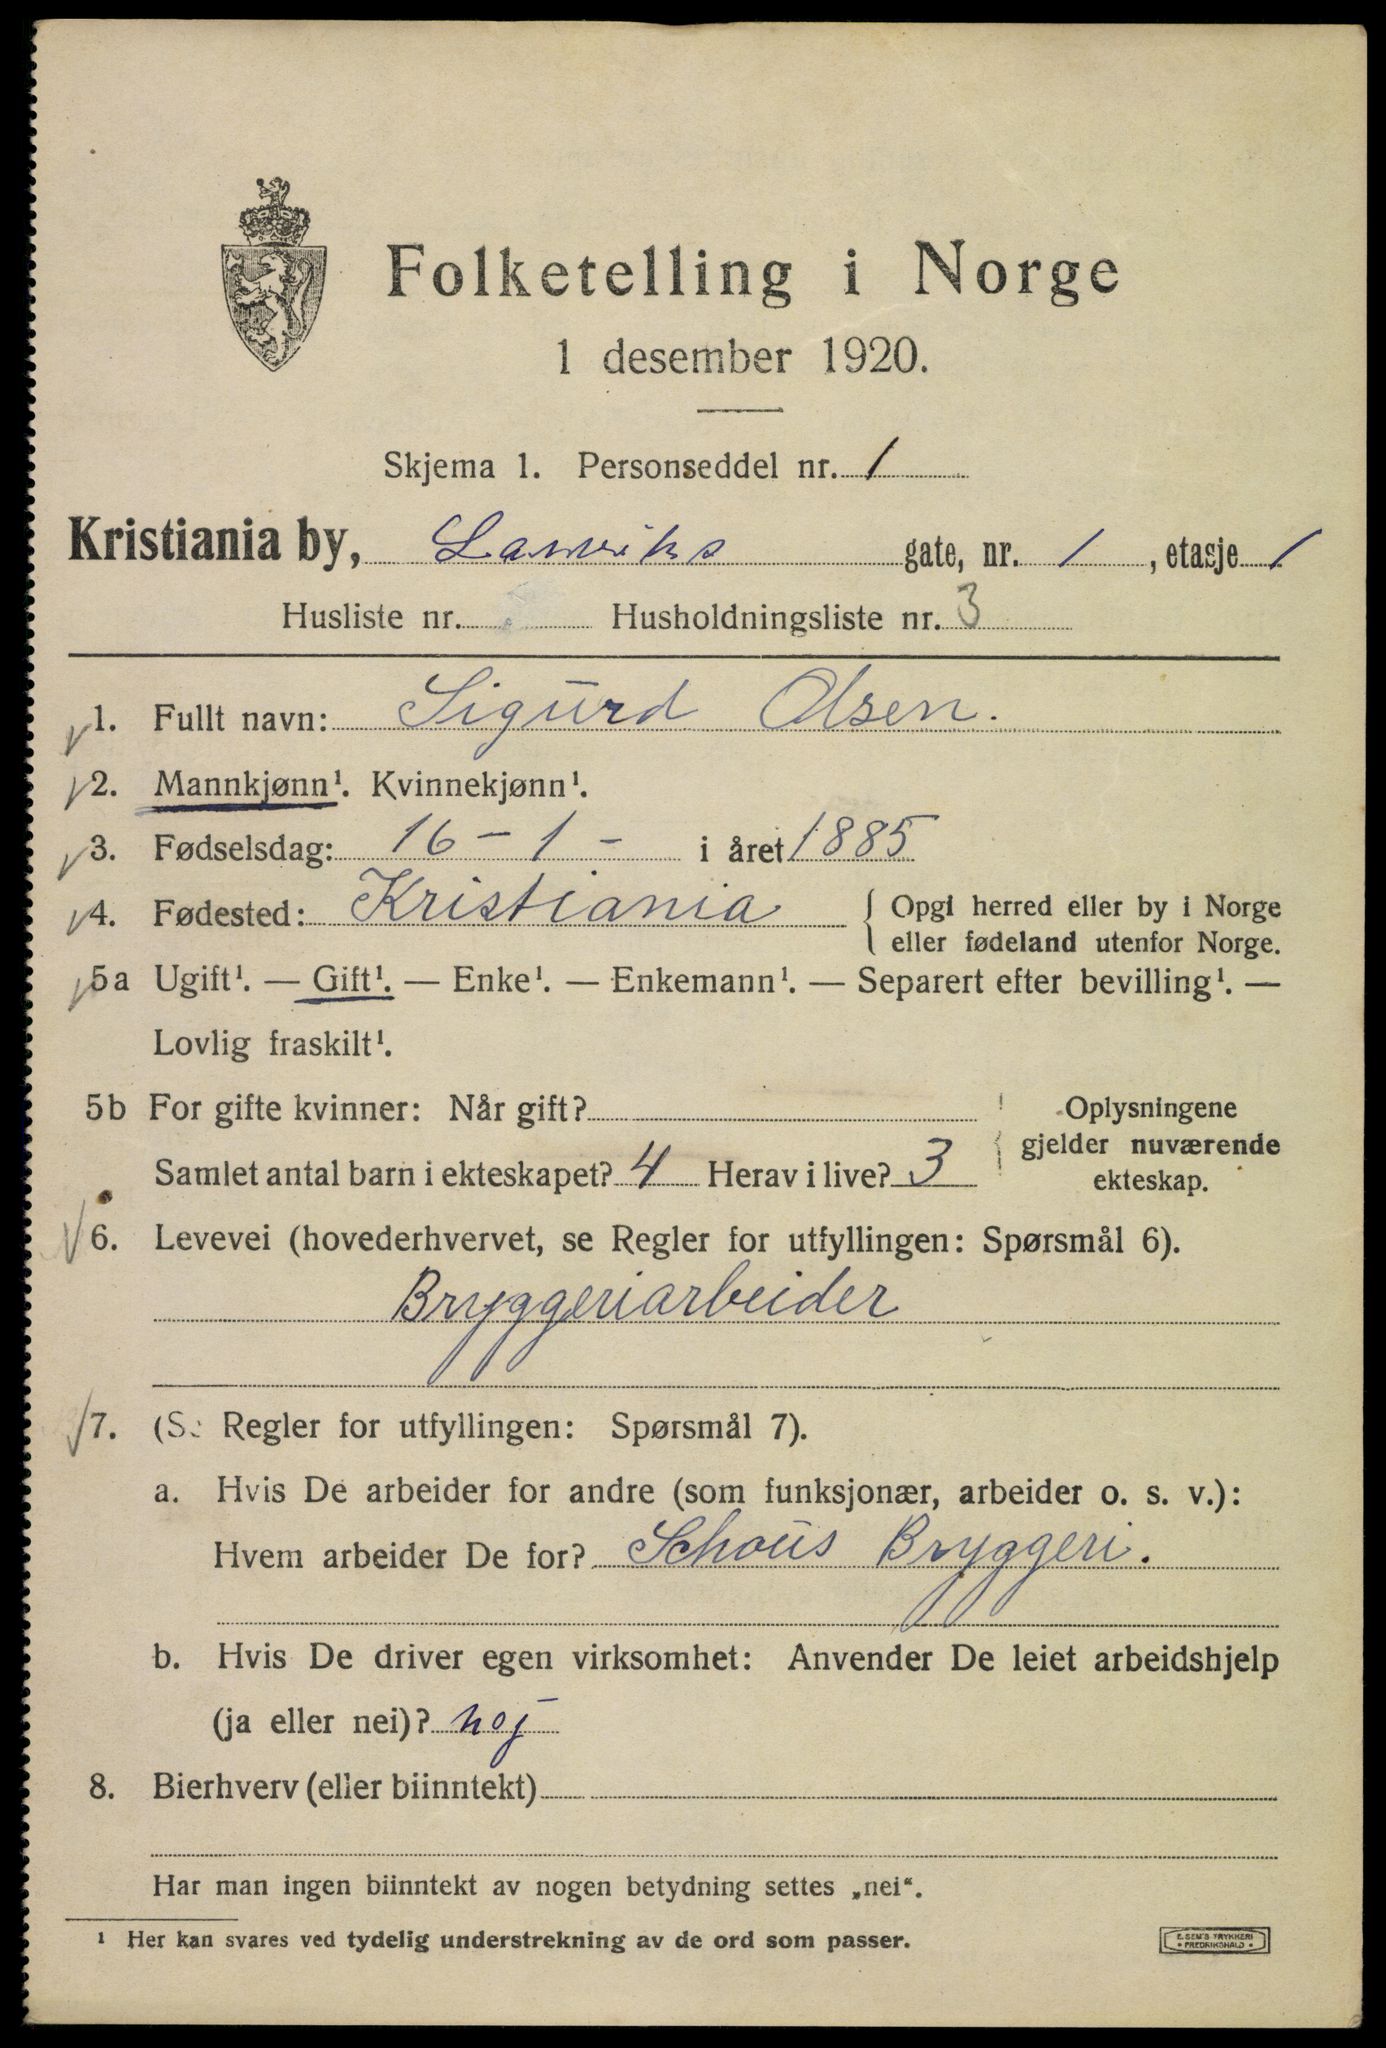 Folketelling i Norge
1 desember 1920.
Skjema 1. Personseddel nr. 1
Kristiania by, Larviks gate, nr. 1, etasje 1
Husliste nr. Husholdningsliste nr. 3
1. Fullt navn: Sigurd Olsen.
2. Mannkjønn¹. Kvinnekjønn¹.
3. Fødselsdag: 16 - 1 - i året 1885
4. Fødested: Kristiania { Opgi herred eller by i Norge
eller fødeland utenfor Norge.
5a Ugift¹. — Gift¹. — Enke¹. — Enkemann¹. — Separert efter bevilling¹. —
Lovlig fraskilt¹.
5b For gifte kvinner: Når gift? Oplysningene
gjelder nuværende
Samlet antal barn i ekteskapet? 4 Herav i live? 3 ekteskap.
6. Levevei (hovederhvervet, se Regler for utfyllingen: Spørsmål 6).
Bryggeriarbeider
7. (Se Regler for utfyllingen: Spørsmål 7).
a. Hvis De arbeider for andre (som funksjonær, arbeider o. s. v.):
Hvem arbeider De for? Schous Bryggeri.
b. Hvis De driver egen virksomhet: Anvender De leiet arbeidshjelp
(ja eller nei)? nej
8. Bierhverv (eller biinntekt)
Har man ingen biinntekt av nogen betydning settes „nei“.
¹ Her kan svares ved tydelig understrekning av de ord som passer.
E. SEM'S TRYKKERI
• FREDRIKSHALD •